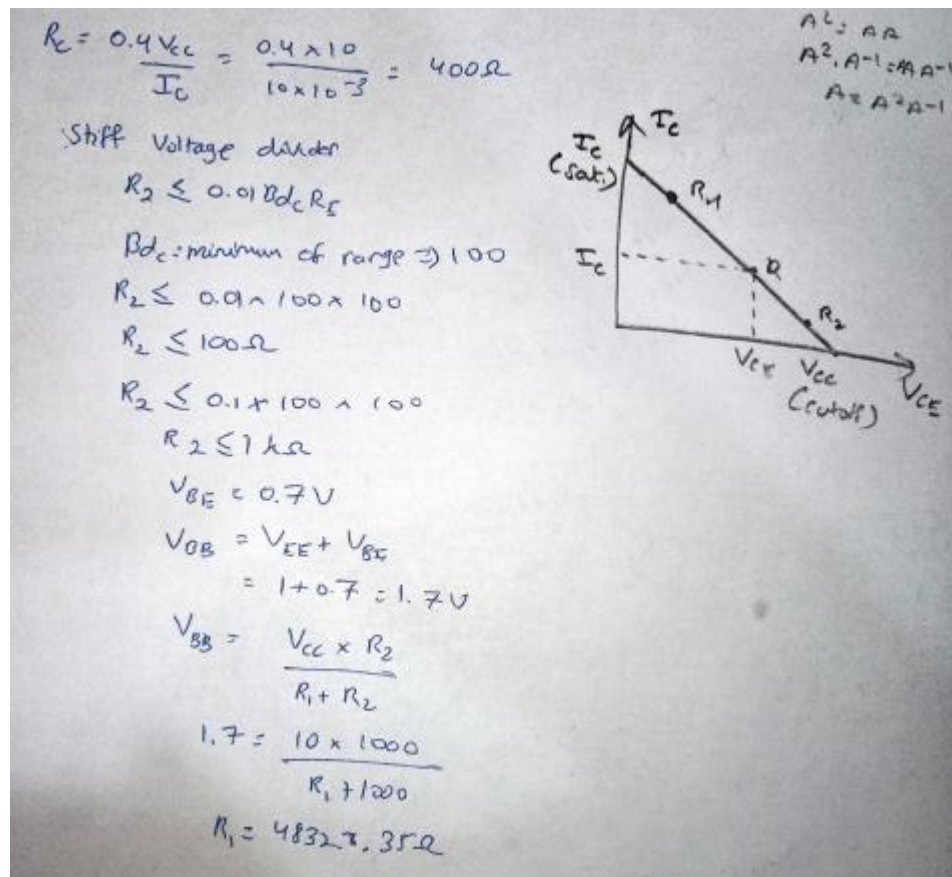 Rc = 0.4Vcc / Ic = 0.4 x 10 / 10x10^-3 = 400Ω
Stiff Voltage divider
R2 ≤ 0.01 Bdc RE
Bdc : minimum of range => 100
R2 ≤ 0.01 x 100 x 100
R2 ≤ 100Ω
R2 ≤ 0.1 x 100 x 100
R2 ≤ 1kΩ
VBE = 0.7V
VBB = VEE + VBE
= 1+0.7 = 1.7V
VBB = Vcc x R2 / R1 + R2
1.7 = 10 x 1000 / R1 + 1000
A² = AA
A². A-1 = AA A-1
A = A²A-1
Ic
Ic
(sat.)
R1
Ic
Q
R2
VCE
Vcc
(cutoff)
VCE